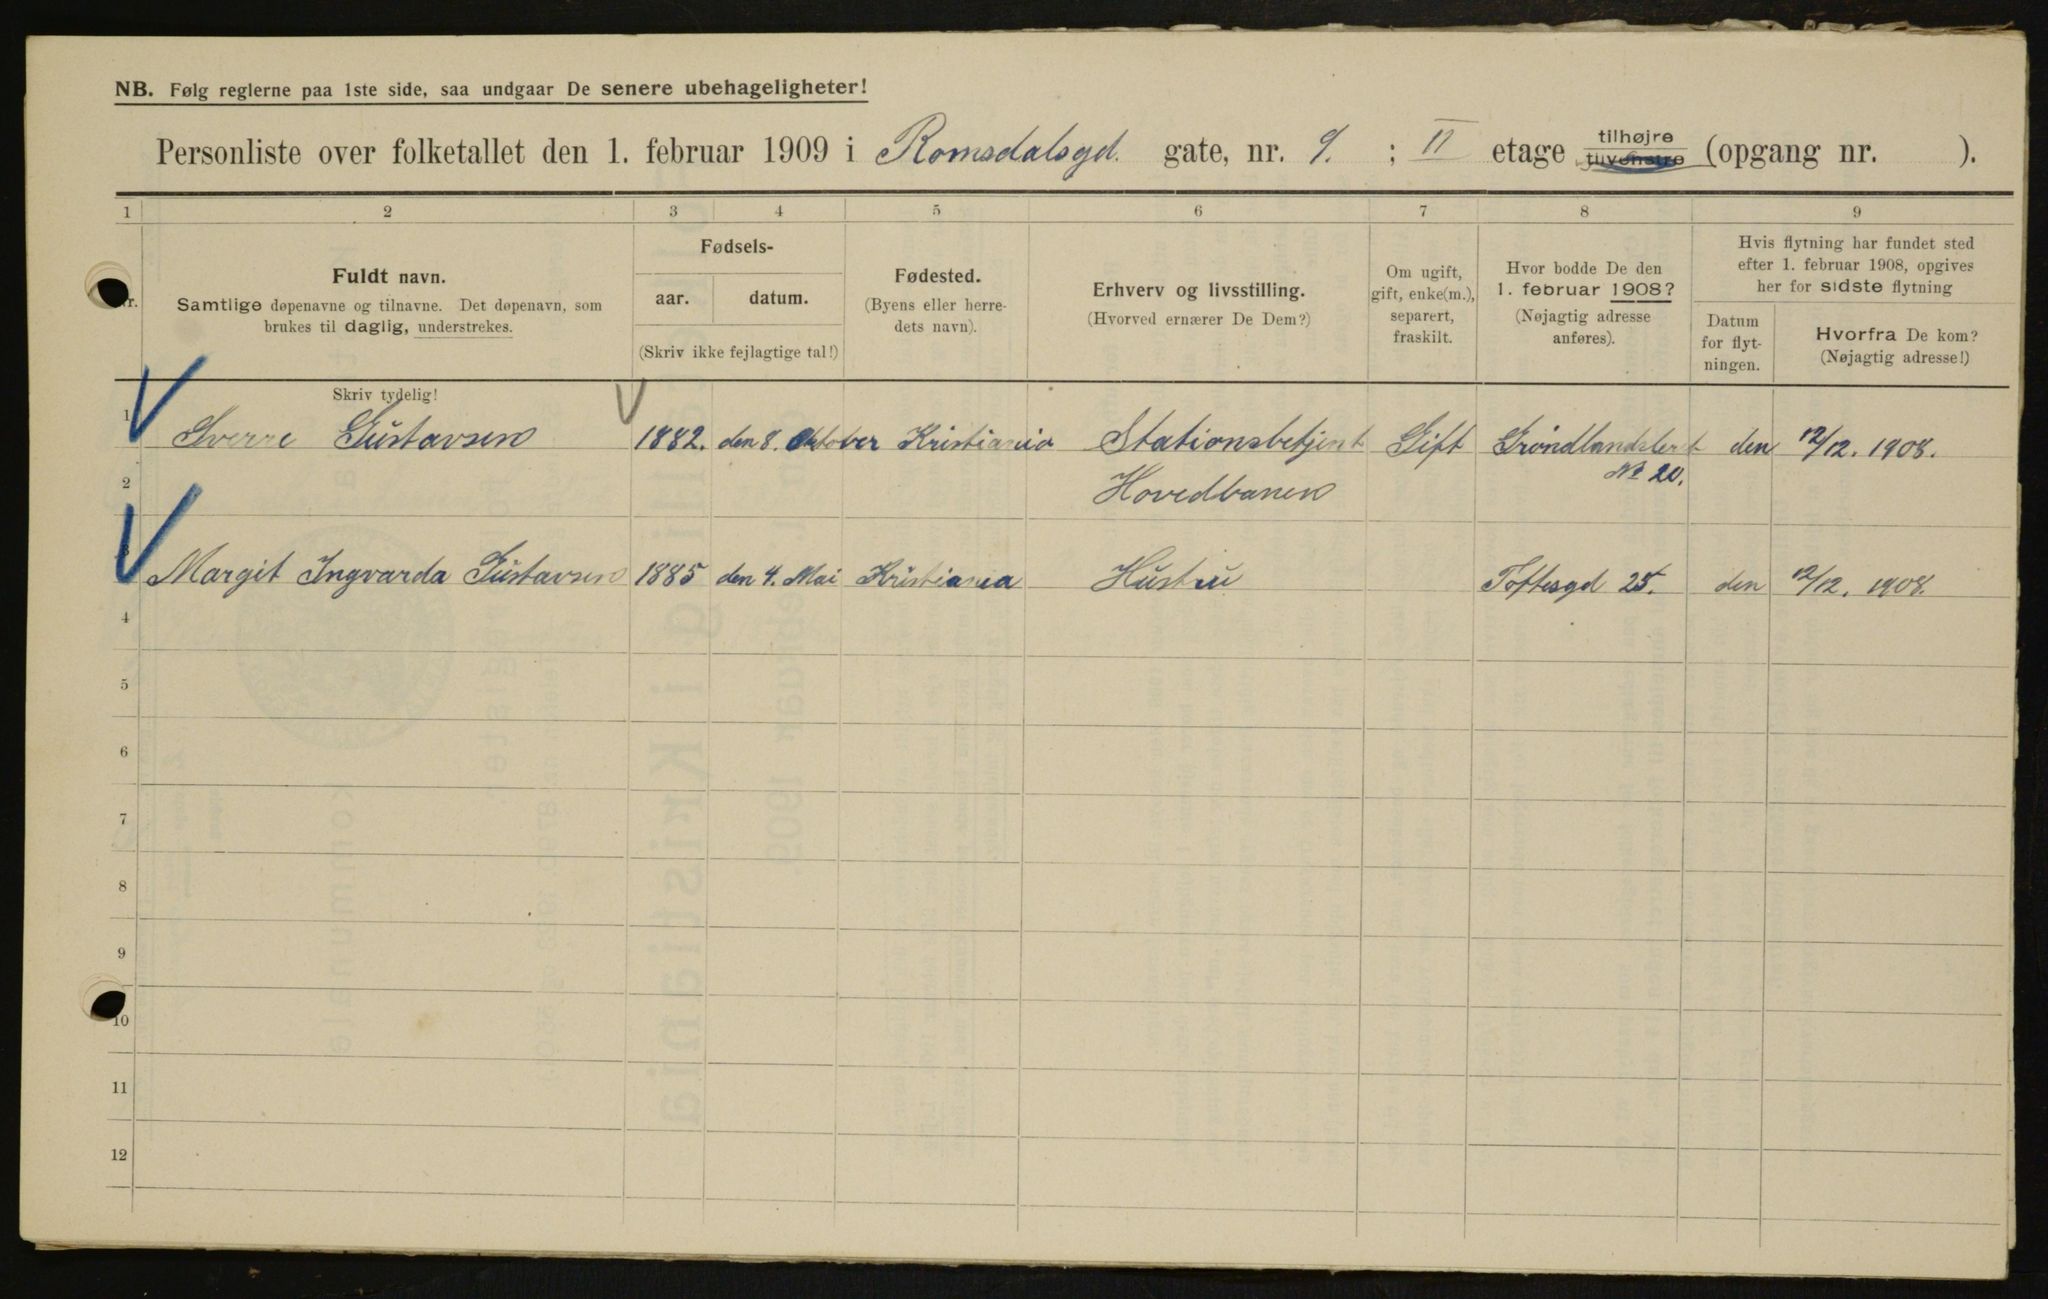 NB. Følg reglerne paa 1ste side, saa undgaar De senere ubehageligheter!
Personliste over folketallet den 1. februar 1909 i Romsdalsgd. gate, nr. 9. ; II etage tilhøjre tilvenstre (opgang nr. ).
1 2 3 4 5 6 7 8 9
Nr.
Fuldt navn.
Samtlige døpenavne og tilnavne. Det døpenavn, som
brukes til daglig, understrekes.
Fødsels-
aar. datum.
(Skriv ikke fejlagtige tal!)
Fødested.
(Byens eller herre-
dets navn).
Erhverv og livsstilling.
(Hvorved ernærer De Dem?)
Om ugift,
gift, enke(m.),
separert,
fraskilt.
Hvor bodde De den
1. februar 1908?
(Nøjagtig adresse
anføres).
Hvis flytning har fundet sted
efter 1. februar 1908, opgives
her for sidste flytning
Datum
for flyt-
ningen.
Hvorfra De kom?
(Nøjagtig adresse!)
Skriv tydelig!
1 Sverre Gustavsen 1882. den 8. Oktober Kristiania Stationsbetjent Gift Gröndlandslert den 12/12. 1908.
2 Hovedbanen No 20.
3 Margit Ingvarda Gustavsen 1885 den 4. Mai Kristiania Hustru Toftesgd 25. den 12/12. 1908.
4
5
6
7
8
9
10
11
12